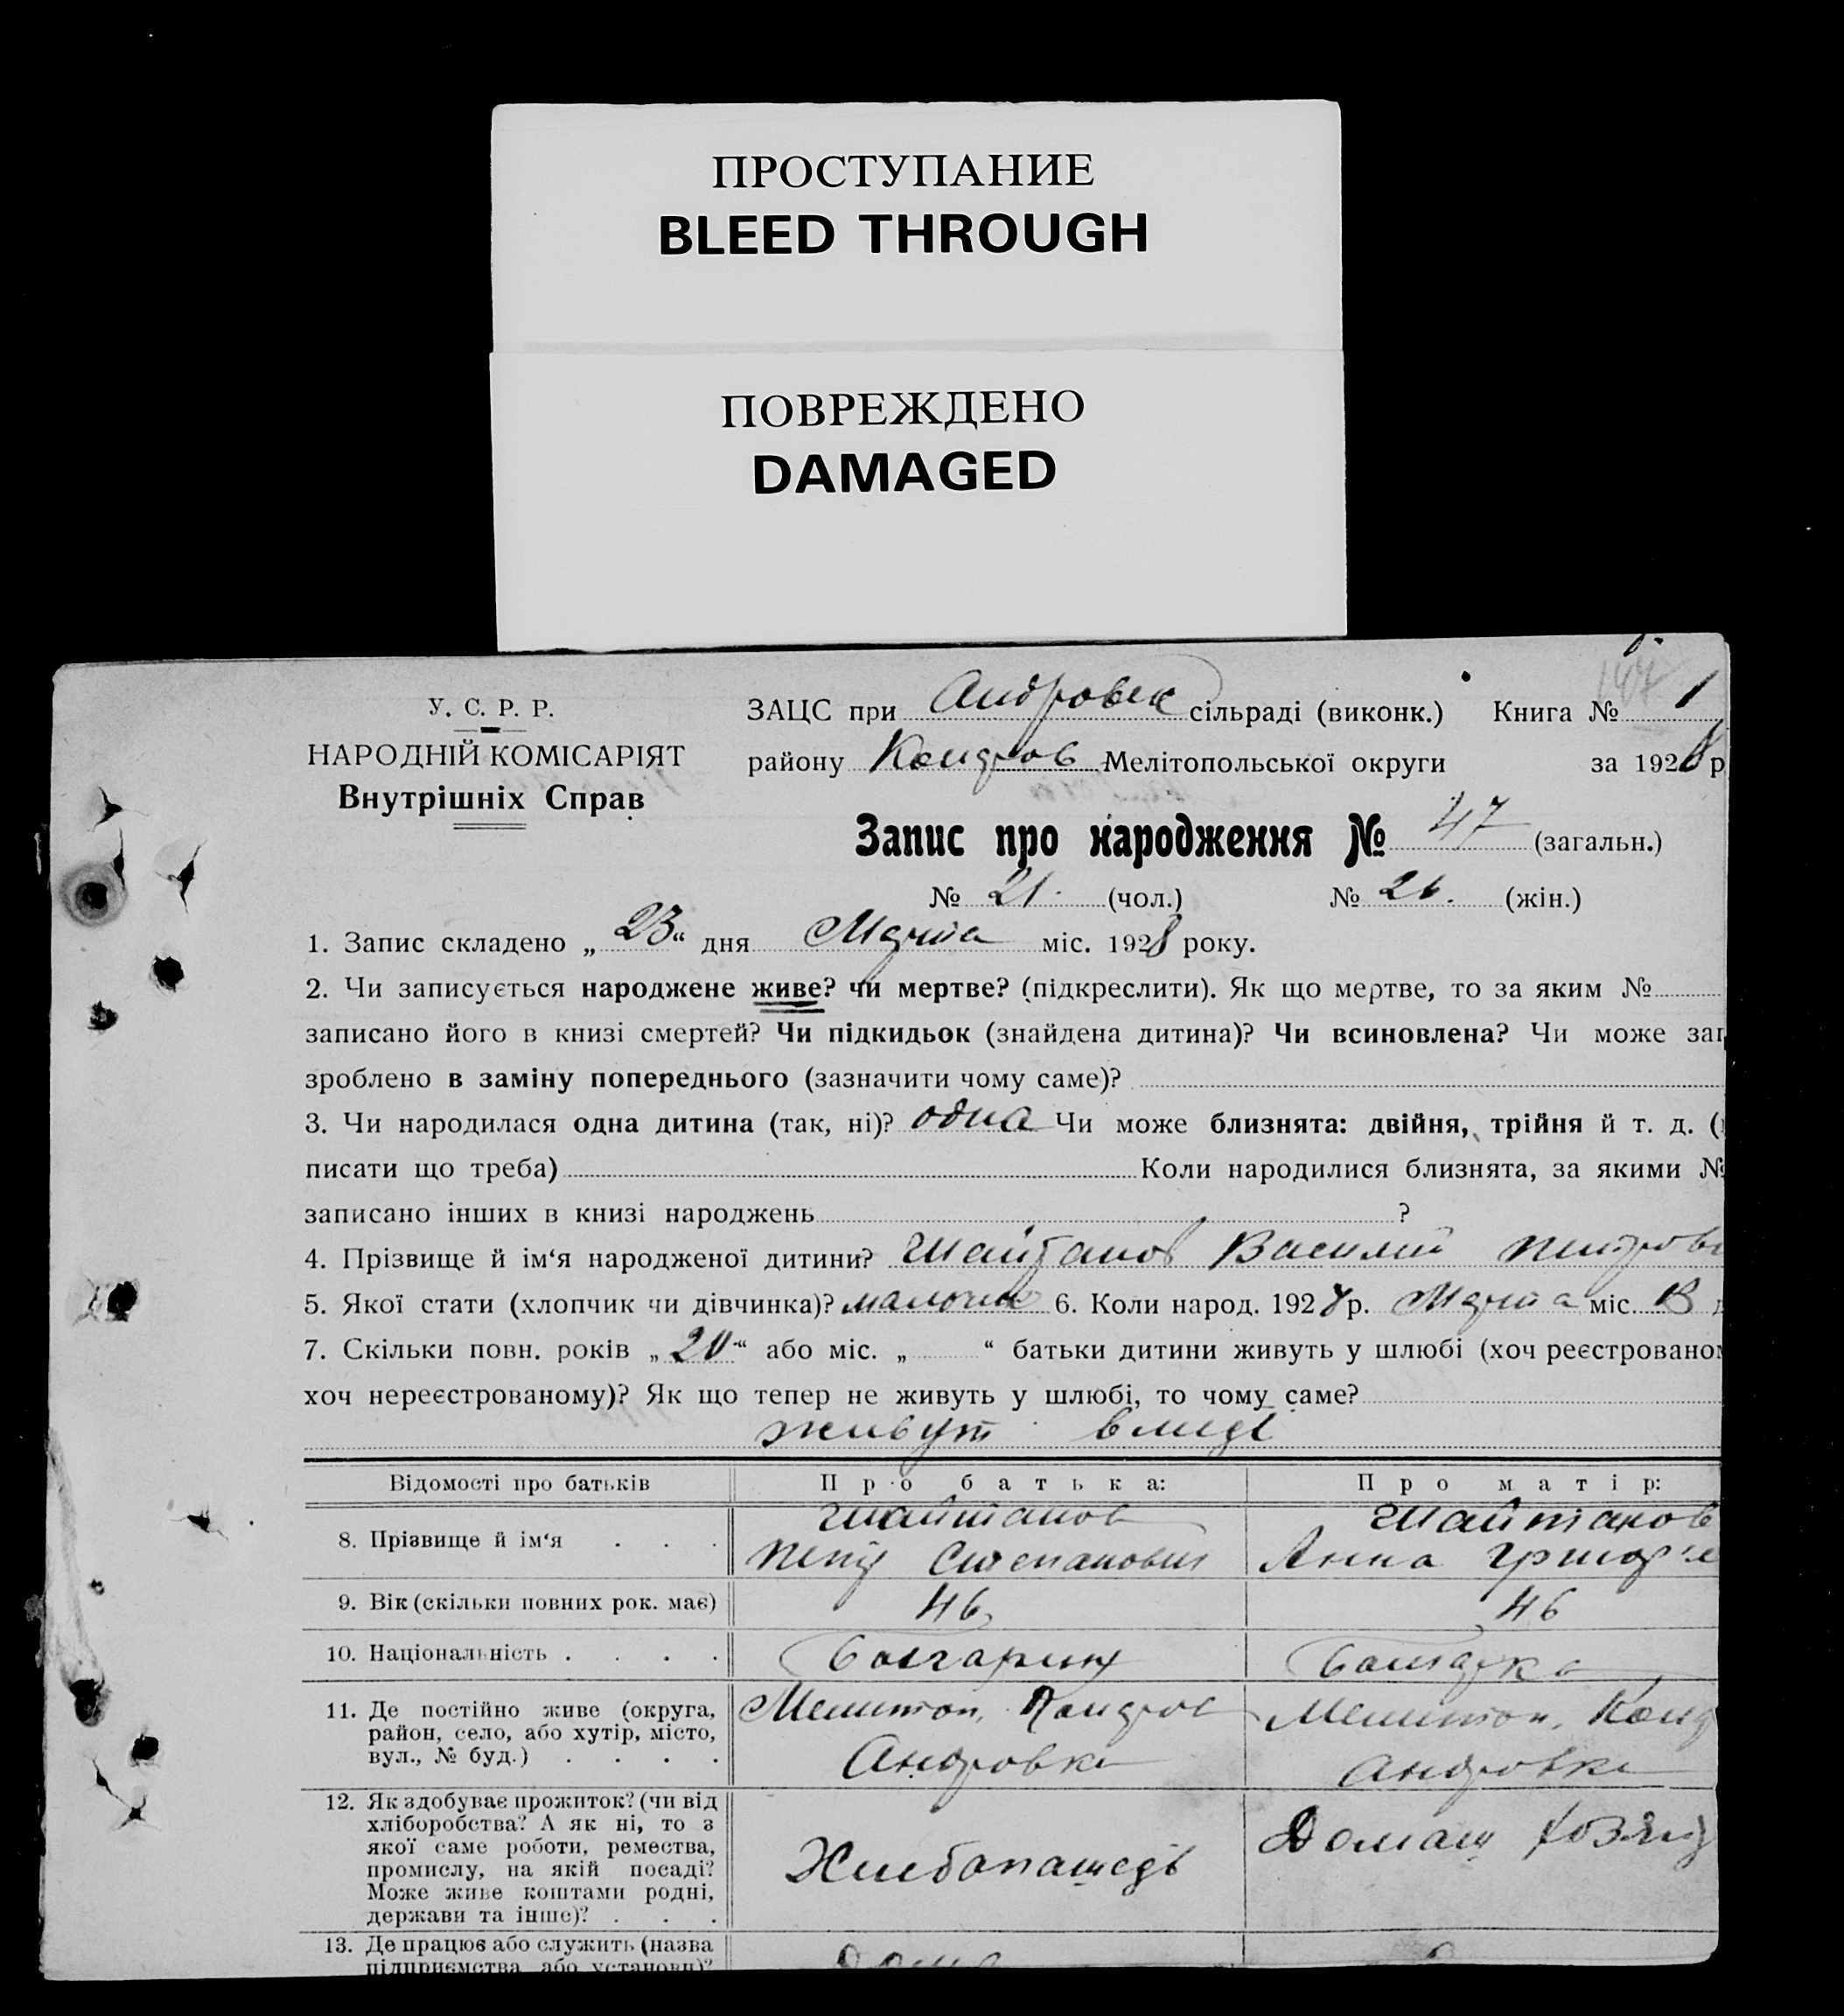 ПРОСТУПАНИЕ
BLEED THROUGH
ПОВРЕЖДЕНО
DAMAGED
147
У. С. Р. Р.
НАРОДНІЙ КОМІСАРІЯТ
Внутрішніх Справ
ЗАЦС при Андровск сільраді (виконк.) Книга № 1
району Кондров Мелітопольської округи за 1928 р
Запис про народження № 47 (загальн.)
№ 21. (чол.) № 26. (жін.)
1. Запис складено „23“ дня Марта міс. 1928 року.
2. Чи записується народжене живе? чи мертве? (підкреслити). Як що мертве, то за яким №
записано його в книзі смертей? Чи підкидьок (знайдена дитина)? Чи всиновлена? Чи може
зроблено в заміну попереднього (зазначити чому саме)?
3. Чи народилася одна дитина (так, ні)? одна Чи може близнята: двійня, трійня й т. д. (
писати що треба) Коли народилися близнята, за якими №
записано інших в книзі народжень ?
4. Прізвище й ім‘я народженої дитини? Шайтанов Василий Петрови
5. Якої стати (хлопчик чи дівчинка)? 6. Коли народ. 1928 р. Марта міс. 13
7. Скільки повн. років „20“ або міс. „ “ батьки дитини живуть у шлюбі (хоч реєстрованом
хоч нереєстрованому)? Як що тепер не живуть у шлюбі, то чому саме?
живут
Відомості про батьків Про батька: Про матір:
8. Прізвище й ім‘я Шайтанов Петр Степанович Шайтанов Анна Григор
9. Вік (скільки повних рок. має) 46 46
10. Національність Болгарин Болгарка
11. Де постійно живе (округа, Мелитоп, Кондров Мелитоп, Конд
район, село, або хутір, місто, Андровка Андровка
вул., № буд.)
12. Як здобуває прожиток? (чи від
хліборобства? А як ні, то з
якої саме роботи, ремества,
промислу, на якій посаді? Хлебопашедь Домаш
Може живе коштами родні,
держави та інше)?
13. Де працює або служить (назва
підприємства або установи)?